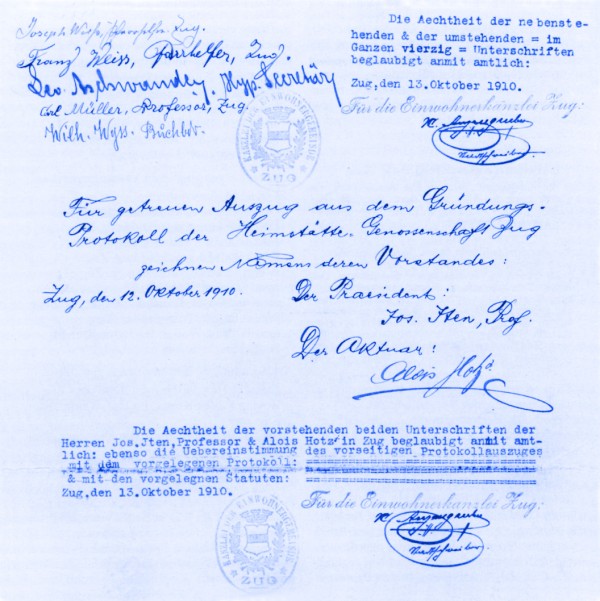 Franz Weiss, Pfarrhelfer, Zug.
Leo Aschwanden, Hyp. Secretär
Carl Müller, Professor, Zug.
Wilh. Wyss. Buchbdr.
KANZLEI DER EINWOHNERGEMEINDE
ZUG
Die Aechtheit der nebenste-
henden & der umstehenden = im
Ganzen vierzig = Unterschriften
beglaubigt anmit amtlich:
Zug, den 13.Oktober 1910.
Für die Einwohnerkanzlei Zug:
Für getreuen Auszug aus dem Gründungs-
Protokoll der Heimstätte-Genossenschaft Zug
zeichnen Namens deren Vorstandes:
Zug, den 12. Oktober 1910.
Der Praesident:
Jos. Iten, Prof.
Der Aktuar:
Alois Hotz
Die Aechtheit der vorstehenden beiden Unterschriften der
Herren Jos.Jten,Professor & Alois Hotz in Zug beglaubigt anmit amt-
lich: ebenso die Uebereinstimmung des vorseitigen Protokollauszuges
mit dem vorgelegenen Protokoll:
& mit den vorgelegnen Statuten:
Zug,den 13.Oktober 1910.
Für die Einwohnerkanzlei Zug:
KANZLEI DER EINWOHNERGEMEINDE
ZUG